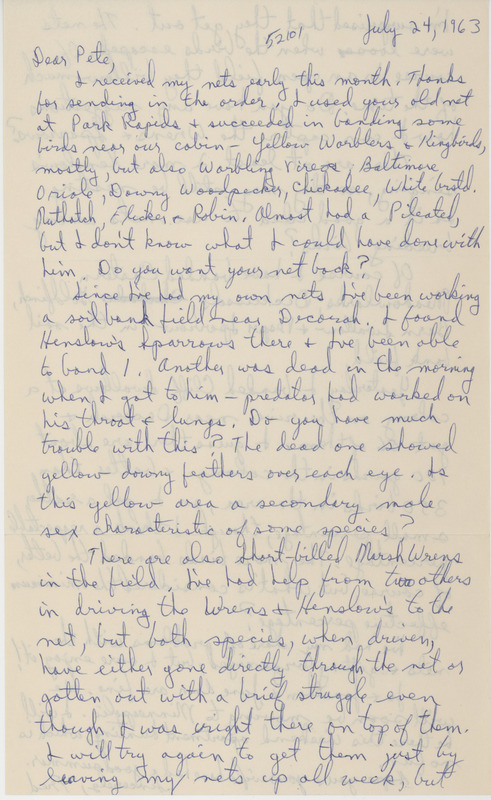 July 24, 1963
52101
Dear Pete,
I received my nets early this month. Thanks
for sending in the order. I used your old net
at Park Rapids & succeeded in banding some
birds near our cabin - Yellow Warblers & Kingbirds,
mostly, but also Warbling Vireos, Baltimore
Oriole, Downy Woodpecker, Chickadee, White brstd.
Nuthatch, Flicker & Robin. Almost had a Pileated,
but I don't know what I could have done with
him. Do you want your net back?
Since I've had my own nets I've been working
a soil bank field near Decorah. I found
Henslow's Sparrows there & I've been able
to band 1. Another was dead in the morning
when I got to him - predator had worked on
his throat & lungs. Do you have much
trouble with this? The dead one showed
yellow downy feathers over each eye. Is
this yellow area a secondary male
sex characteristic of some species?
There are also Short-billed Marsh Wrens
in the field. I've had help from two others
in driving the Wrens & Henslows to the
net, but both species, when driven,
have either gone directly through the net or
gotten out with a brief struggle even
though I was right there on top of them.
I will try again to get them just by
leaving my nets up all week, but